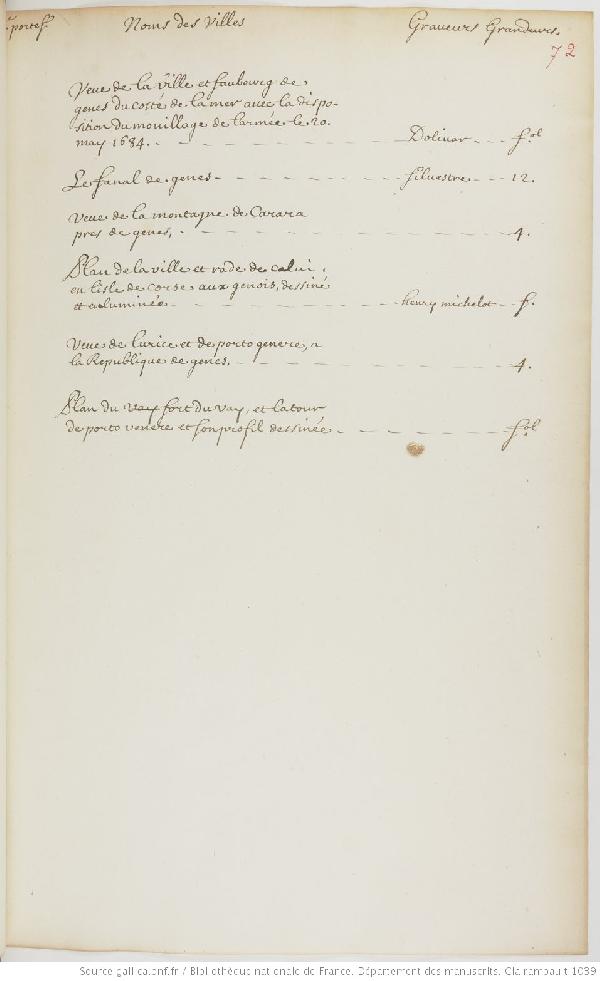 portef. Noms des Villes Graveurs Grandeurs.
72
Veue de la ville et faubourg de
genes du costé de la mer avec la dispo-
sition du mouillage de l'armée le 20.
may 1684. Dolivar fol
Le fanal de genes Silvestre 12.
Veue de la montagne de Carara
pres de genes. 4.
Plan de la ville et rade de calui,
en l'isle de corse aux genois, dessiné
et enluminée henry michelot f.
Veue de lurice et de porto genere, a
la Republique de genes. 4.
Plan du vay fort du vay, et la tour
de porto venere et son profil dessinée fol
Source gallica.bnf.fr / Bibliothèque nationale de France. Département des manuscrits. Clairambault 1039